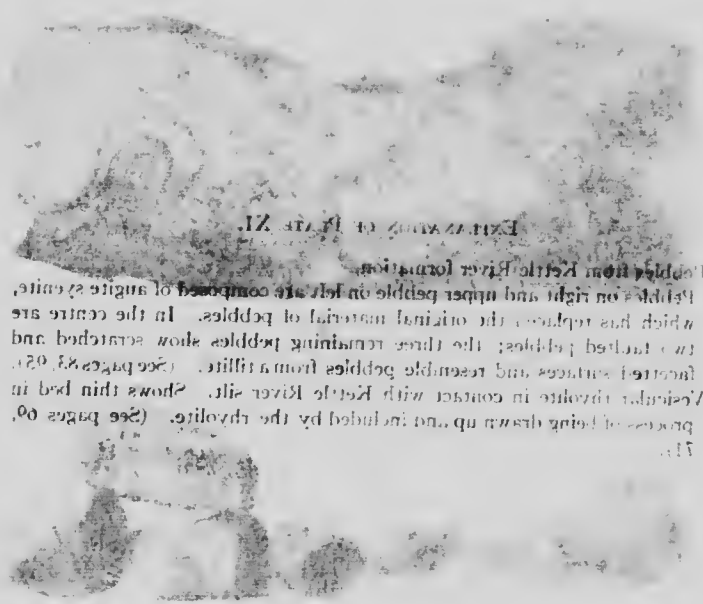 EXPLANATION OF PLATE XI.
Pebbles from Kettle River formation.
Pebbles on right and upper pebble on left are composed of augite syenite,
which has replaced the original material of pebbles. In the centre are
two faulted pebbles; the three remaining pebbles show scratched and
facetted surfaces and resemble pebbles from a tillite. (See pages 83, 95).
Vesicular rhyolite in contact with Kettle River silt. Shows thin bed in
process of being drawn up and included by the rhyolite. (See pages 69,
71).